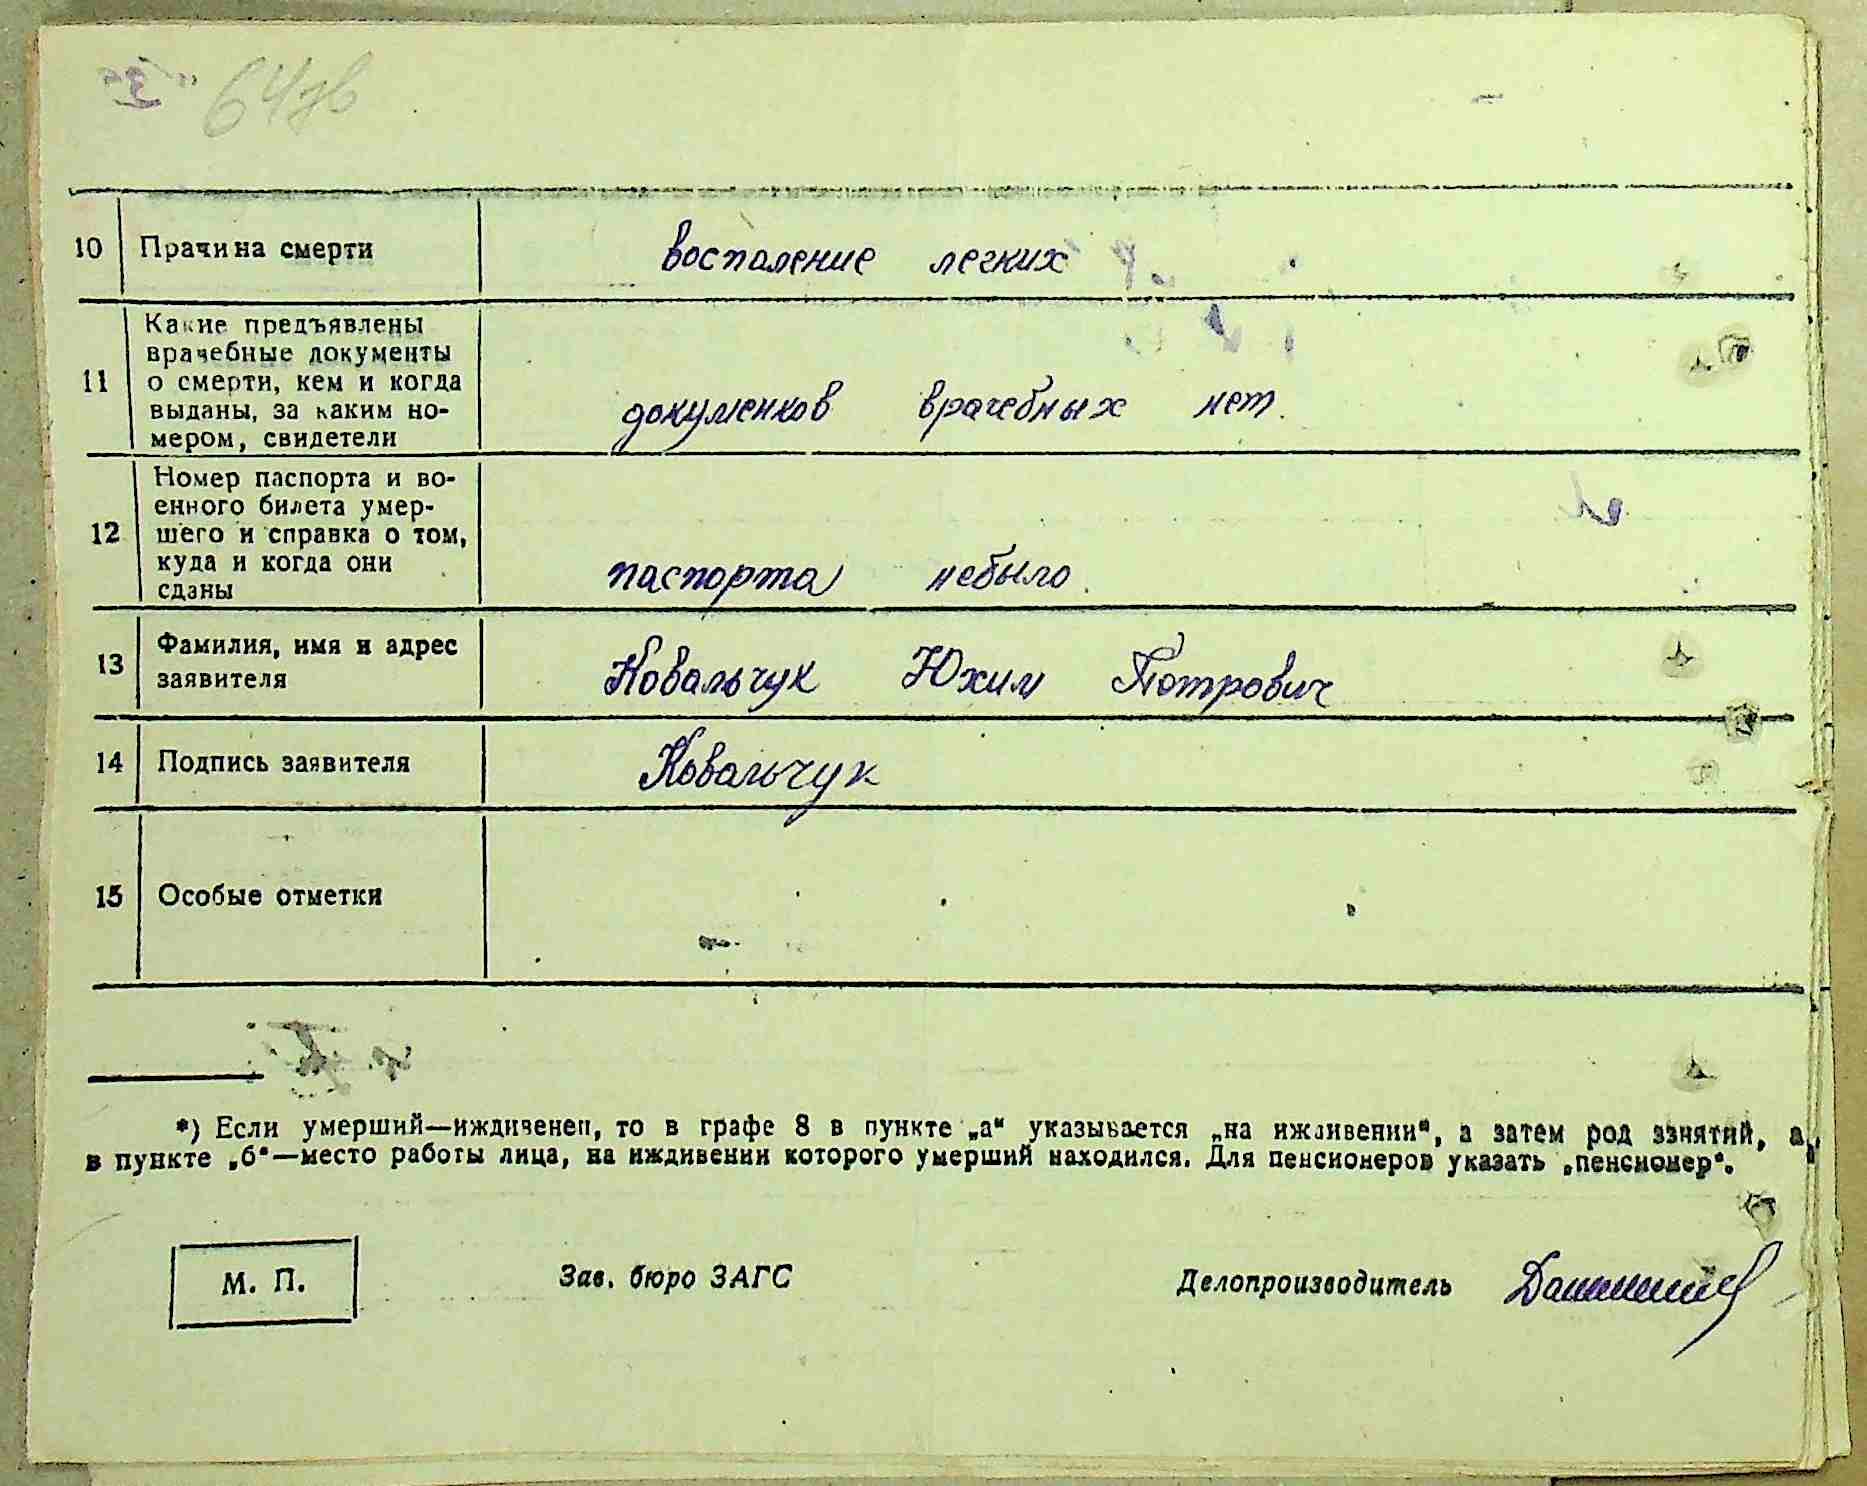 64зв
10 Прачина смерти воспаление легких
Какие предъявлены
врачебные документы
11 о смерти, кем и когда документов врачебных нет.
выданы, за каким но-
мером, свидетели
Номер паспорта и во-
енного билета умер-
12 шего и справка о том,
куда и когда они паспорта небыло.
сданы
13 Фамилия, имя и адрес Ковальчук Юхим Петрович
заявителя
14 Подпись заявителя Ковальчук
15 Особые отметки
*) Если умерший—иждивенец, то в графе 8 в пункте „а“ указывается „на иждивении“, а затем род занятий, а
в пункте „б“—место работы лица, на иждивении которого умерший находился. Для пенсионеров указать „пенсионер“.
М. П. Зав. бюро ЗАГС Делопроизводитель